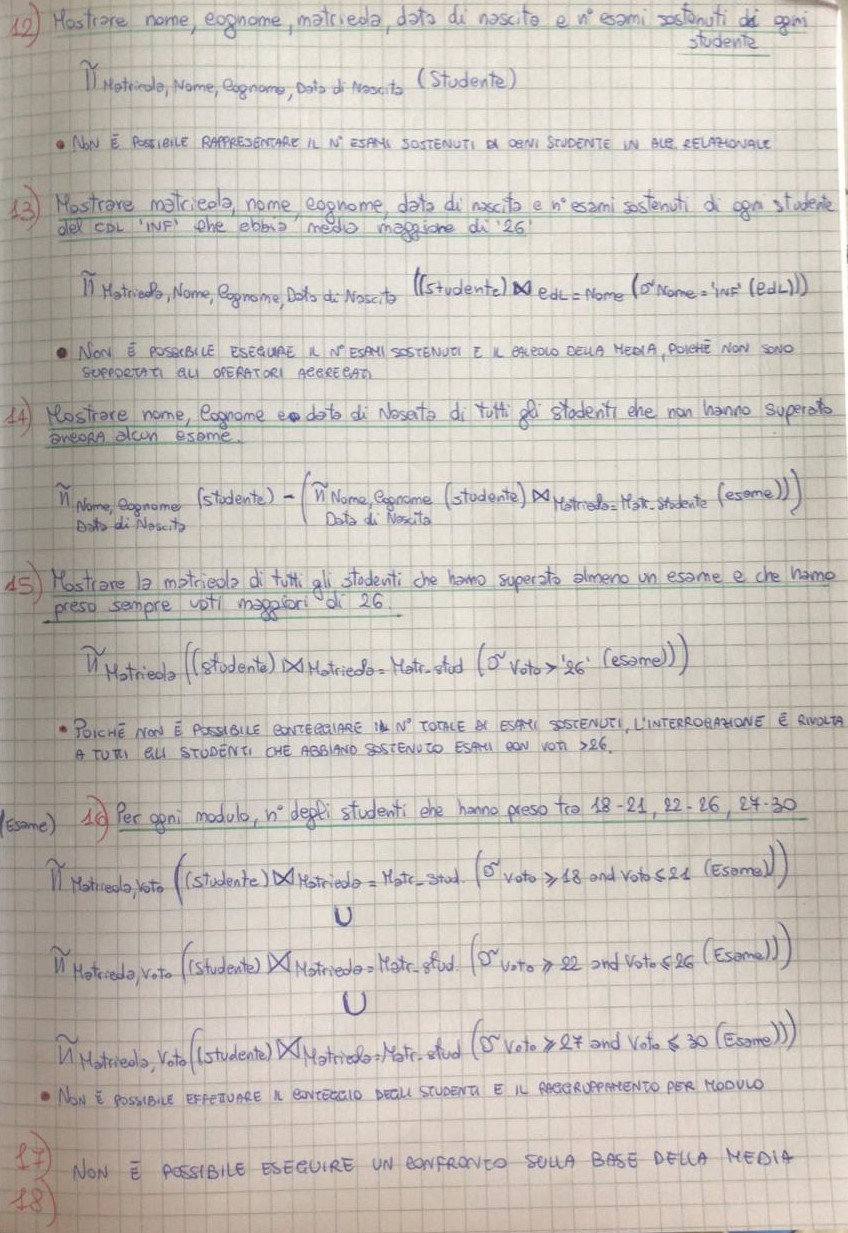 12) Mostrare nome, cognome, matricola, data di nascita e n° esami sostenuti di ogni
studente
π Matricola, Nome, Cognome, Data di Nascita (Studente)
• NON È POSSIBILE RAPPRESENTARE IL N° ESAMI SOSTENUTI DI OGNI STUDENTE IN ALG. RELAZIONALE
13) Mostrare matricola, nome, cognome, data di nascita e n° esami sostenuti di ogni studente
del CDL 'INF' che abbia media maggiore di '26'
π Matricola, Nome, Cognome, Data di Nascita ((studente) ⋈ CdL = Nome (σ Nome = 'INF' (CdL)))
• NON È POSSIBILE ESEGUIRE IL N° ESAMI SOSTENUTI E IL CALCOLO DELLA MEDIA, POICHÈ NON SONO
SUPPORTATI GLI OPERATORI AGGREGATI
14) Mostrare nome, Cognome e data di Nascita di tutti gli studenti che non hanno superato
ancora alcun esame.
π Nome, Cognome (studente) - (π Nome, Cognome (studente) ⋈ Matricola = Matr_Studente (esame))
Data di Nascita Data di Nascita
15) Mostrare la matricola di tutti gli studenti che hanno superato almeno un esame e che hanno
preso sempre voti maggiori di 26.
π Matricola ((studente) ⋈ Matricola = Matr_stud (σ Voto > '26' (esame)))
• POICHÈ NON È POSSIBILE CONTEGGIARE IL N° TOTALE DI ESAMI SOSTENUTI, L'INTERROGAZIONE È RIVOLTA
A TUTTI GLI STUDENTI CHE ABBIANO SOSTENUTO ESAMI CON VOTI >26.
(Esame) 16) Per ogni modulo, n° degli studenti che hanno preso tra 18-21, 22-26, 27-30
π Matricola, Voto ((studente) ⋈ Matricola = Matr_Stud. (σ Voto ⩾ 18 and Voto ⩽ 21 (Esame)))
∪
π Matricola, Voto ((studente) ⋈ Matricola = Matr_stud. (σ Voto ⩾ 22 and Voto ⩽ 26 (Esame)))
∪
π Matricola, Voto ((studente) ⋈ Matricola = Matr_stud (σ Voto ⩾ 27 and Voto ⩽ 30 (Esame)))
• NON È POSSIBILE EFFETTUARE IL CONTEGGIO DEGLI STUDENTI E IL RAGGRUPPAMENTO PER MODULO
17) NON È POSSIBILE ESEGUIRE UN CONFRONTO SULLA BASE DELLA MEDIA
18)